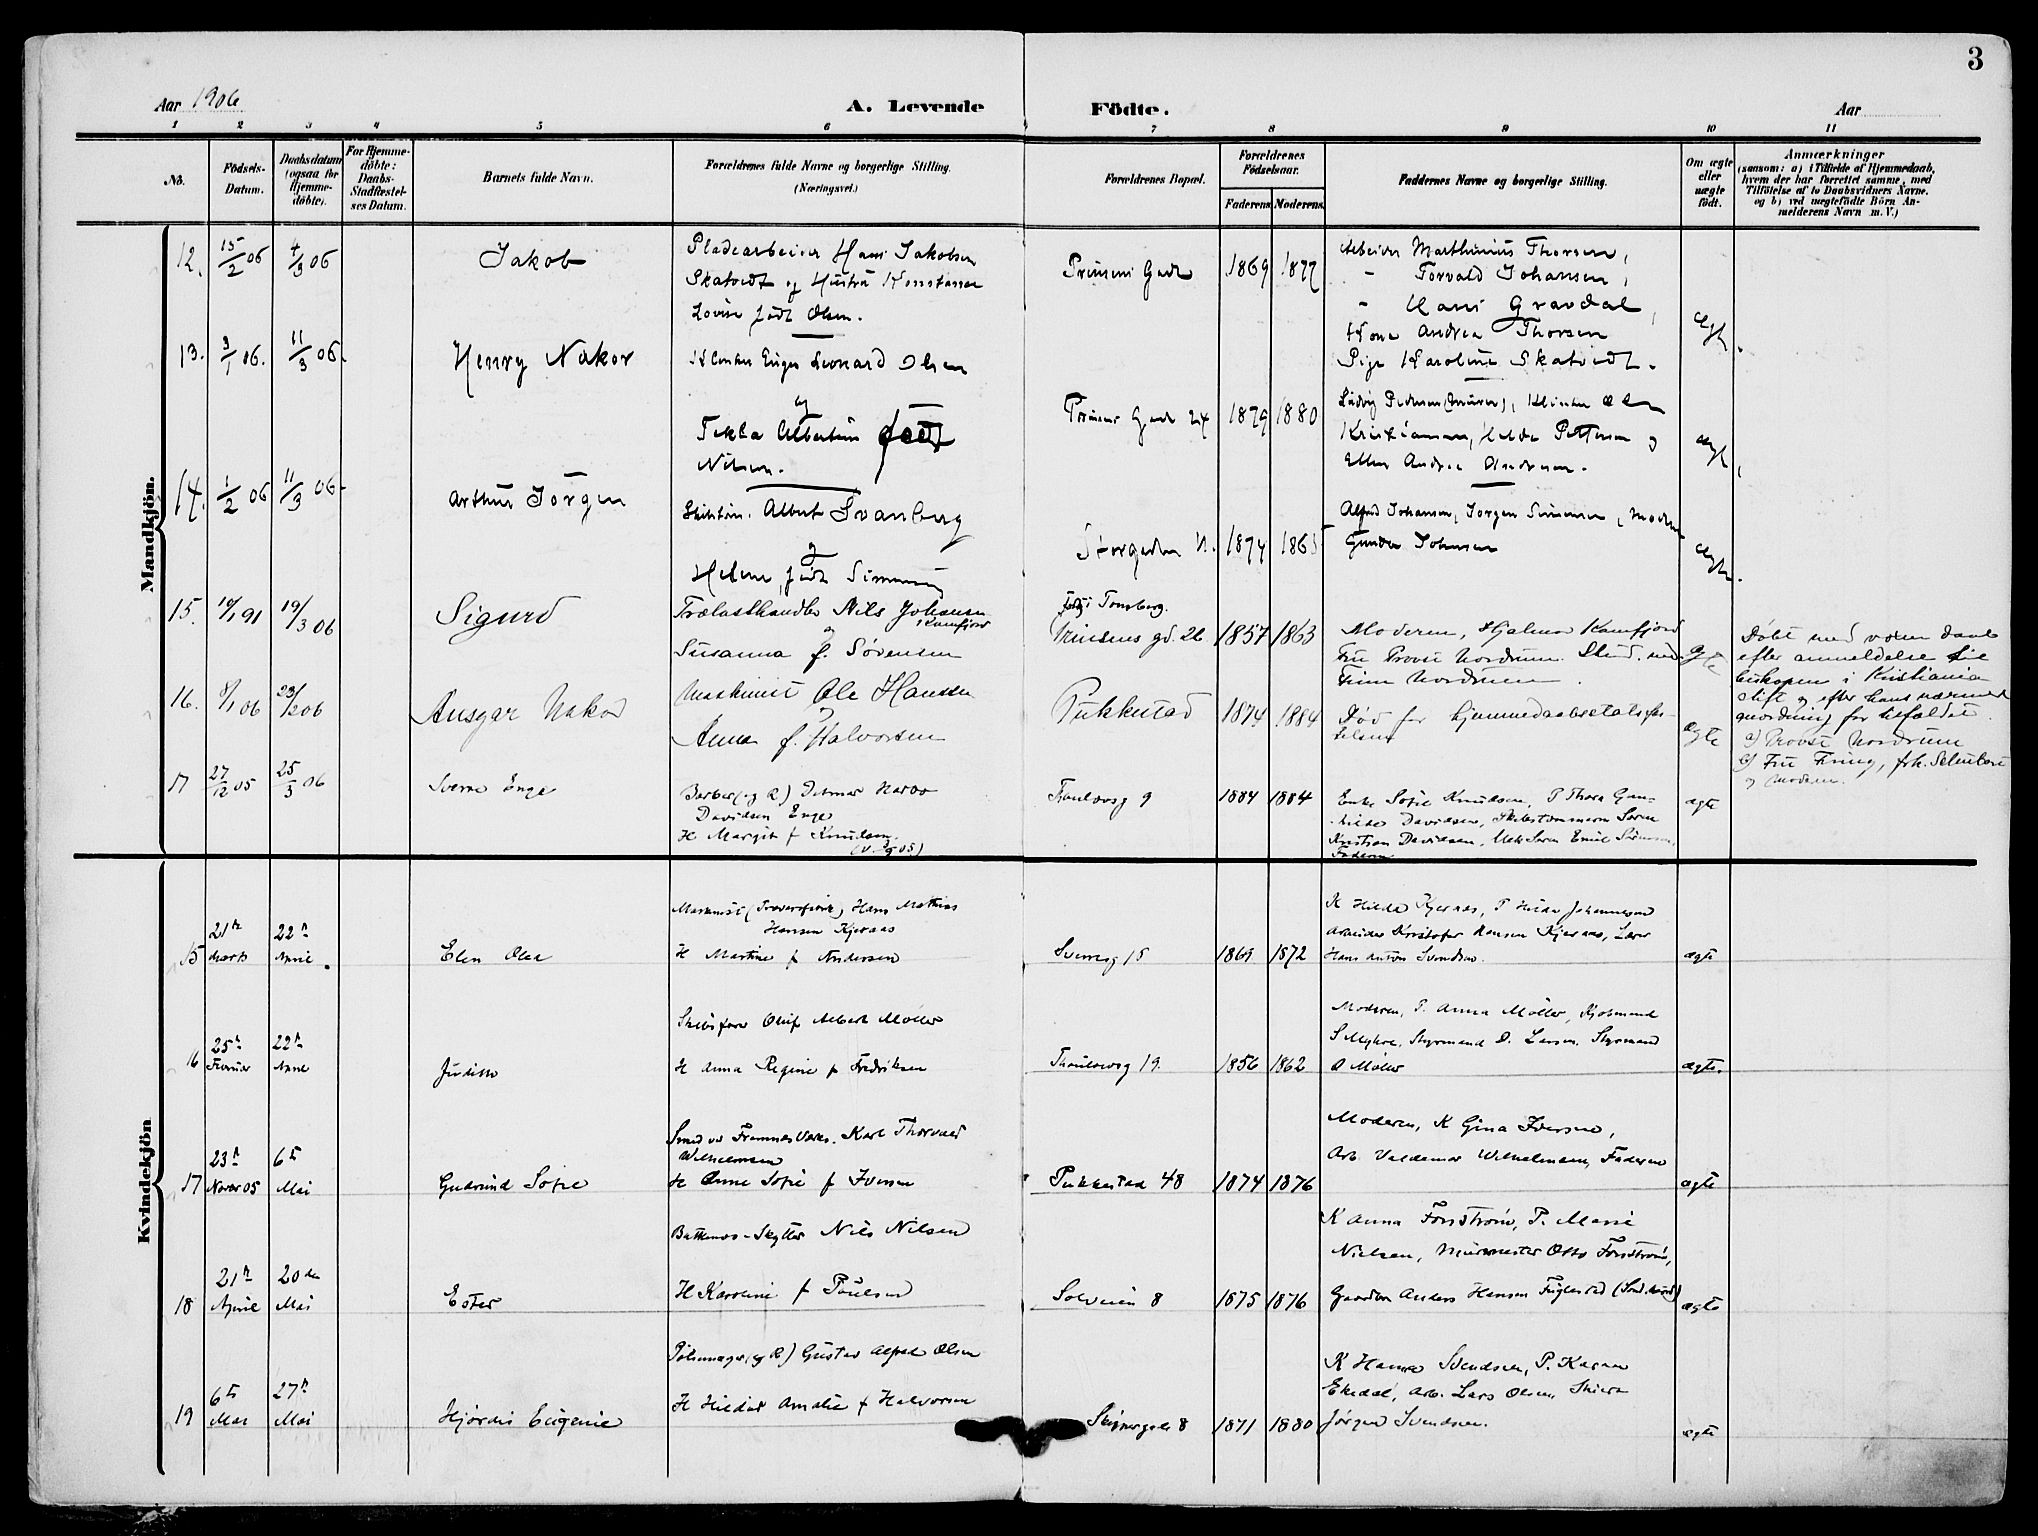 3
Aar 1906
A. Levende Födte.
Aar
1 2 3 4 5 6 7 8 9 10 11
No.
Födsels-
Datum.
Daabsdatum
(ogsaa for
Hjemme-
döbte).
For Hjemme-
döbte:
Daabs-
Stadfæstel-
ses Datum.
Barnets fulde Navn.
Forældrenes fulde Navne og borgerlige Stilling.
(Næringsvei.)
Forældrenes Bopæl.
Forældrenes
Födselsaar.
Faderens Moderens
Faddernes Navne og borgerlige Stilling.
Om ægte
eller
uægte
födt.
Anmærkninger
(saasom: a) i Tilfælde af Hjemmedaab,
hvem der har forrettet samme, med
Tilföielse af to Daabsvidners Navne.
og b) ved uægtefödte Börn An-
melderens Navn m. V.)
Mandkjön.
12. 15/2 06 4/3 06 Jakob
Pladearbeider Hans Jakobsen
Skatvedt og Hustru Konstanse
Lovise född Olsen.
Prinsens Gade 1869 1877
Arbeider Marthinius Thorsen,
- Torvald Johansen,
- Hans Gravdal,
Kone Andrea Thorsen
Pige Karoline Skatvedt.
ægte.
13. 3/1 06. 11/3 06. Henry Nakor
Klinker Birger Leonard Olsen
og
Tekla Albertine född
Nilsen.
Prinsens Gade 24 1879 1880
Ludvig Pedersen (Murer), Klinker Olen
Kristiansen, Hilda Pettersen og
Ellen Andrea Andersen.
ægte
14. 1/2 06 11/3 06. Arthur Jörgen
Skibstøm. Albert Svanberg
og
Helene född Simensen
Storgaden 11. 1874 1865
Alfred Johansen, Jørgen Simensen, Moderen
Gunda Johansen
ægte.
15. 10/1 91 19/3 06 Sigurd
Trælasthandler Nils Johansen
Kamfjord
og
Susanna f. Sørensen
Født i Tønsberg.
Prinsens gd. 26 1857 1863
Moderen, Hjalmar Kamfjord
Fru Provst Nordrum. Stud. med.
Finn Nordrum.
ægte
Døbt med voxen daab
efter anmeldelse til
biskopen i Kristiania
stift og efter hans nærmere
anordning for tilfældet.
16. 8/1 06 23/2 06 Ansgar Nakor
Maskinist Ole Hansen
og
Anna f. Halvorsen
Pukkestad 1874 1884
Død før hjemmedaabsstadfæs-
telsen
ægte
a) Provst Nordrum
b) Fru Firing, frk. Schubert
og Moderen.
17 27/12 05 25/3 06 Sverre Enge
Barber (og R) Ditmar Narvo
Davidsen Enge
H Margit f Knudsen.
(v. 3/9 05)
Thaulowsg 9 1884 1884
Enke Sofie Knudsen, P Thora Gun-
hilda Davidsen, Skibstømmerm Søren
Kristian Davidsen, Mek Søren Emil Sørensen,
Faderen
ægte
Kvindekjön
15 21de Marts 22de April. Elen Olea
Maskinist (Tranersfabrik) Hans Mathias
Hansen Kjernaas
H Martine f Andersen
Sverresg 15 1869 1872
K Hilda Kjernaas, P Hilda Johannesen
Arbeider Kristofer Hansen Kjernaas, Lærer
Hans Anton Svendsen.
ægte
16 25de Februar 22de April Judith
Skibsfører Oluf Albert Møller
H Anna Regine f Fredriksen
Thaulowsg 19. 1856 1862
Moderen, P. Anna Møller, Kjøbmand
S Myhre, Styrmand D. Larsen, Styrmand
A Møller
ægte.
17 23de Novbr 05 6te Mai Gudrund Sofie
Smed ved Framnæs Værks. Karl Thorvald
Wilhelmsen
H Anne Sofie f Iversen
Pukkestad 48 1874 1876
Moderen, K Gina Iversen,
Arb. Valdemar Wilhelmsen, Faderen
ægte
18 21de April 20de Mai Ester
Bottlenos-Skytter Nils Nilsen
H Karoline f Poulsen
Solveien 8 1875 1876
K Anna Forsstrøm, P. Marie
Nielsen, Murmester Otto Forsstrøm,
Gaardbr Anders Hansen Fuglestad (Sandehered)
ægte
19 6te Mai 27de Mai Hjørdis Eugenie
Pølsemager (og R) Gustav Alfred Olsen
H Hilda Amalie f Halvorsen
Skippergade 8 1871 1880
K Hanna Svendsen, P. Karen
Ekedal, Arb. Lars Olsen, Skibsr
Jørgen Svendsen.
ægte